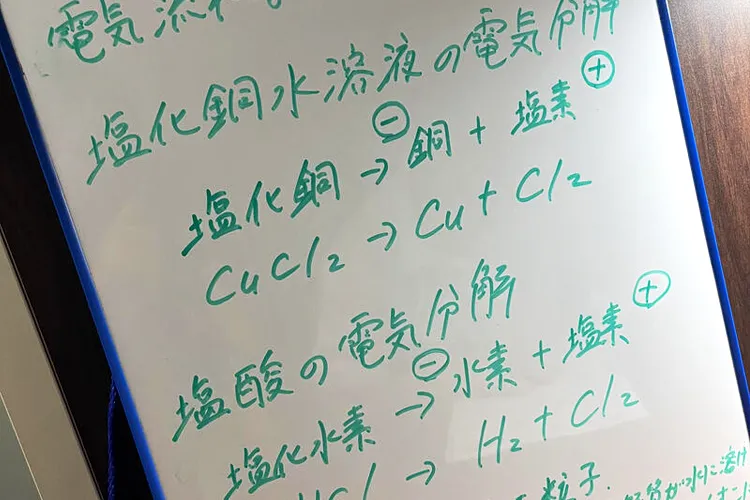 電気
塩化銅水溶液の電気分解
⊖ ⊕
塩化銅 → 銅 + 塩素
CuCl2 → Cu + Cl2
塩酸の電気分解
⊖ ⊕
塩化水素 → 水素 + 塩素
→ H2 + Cl2
粒子.
が水に溶け